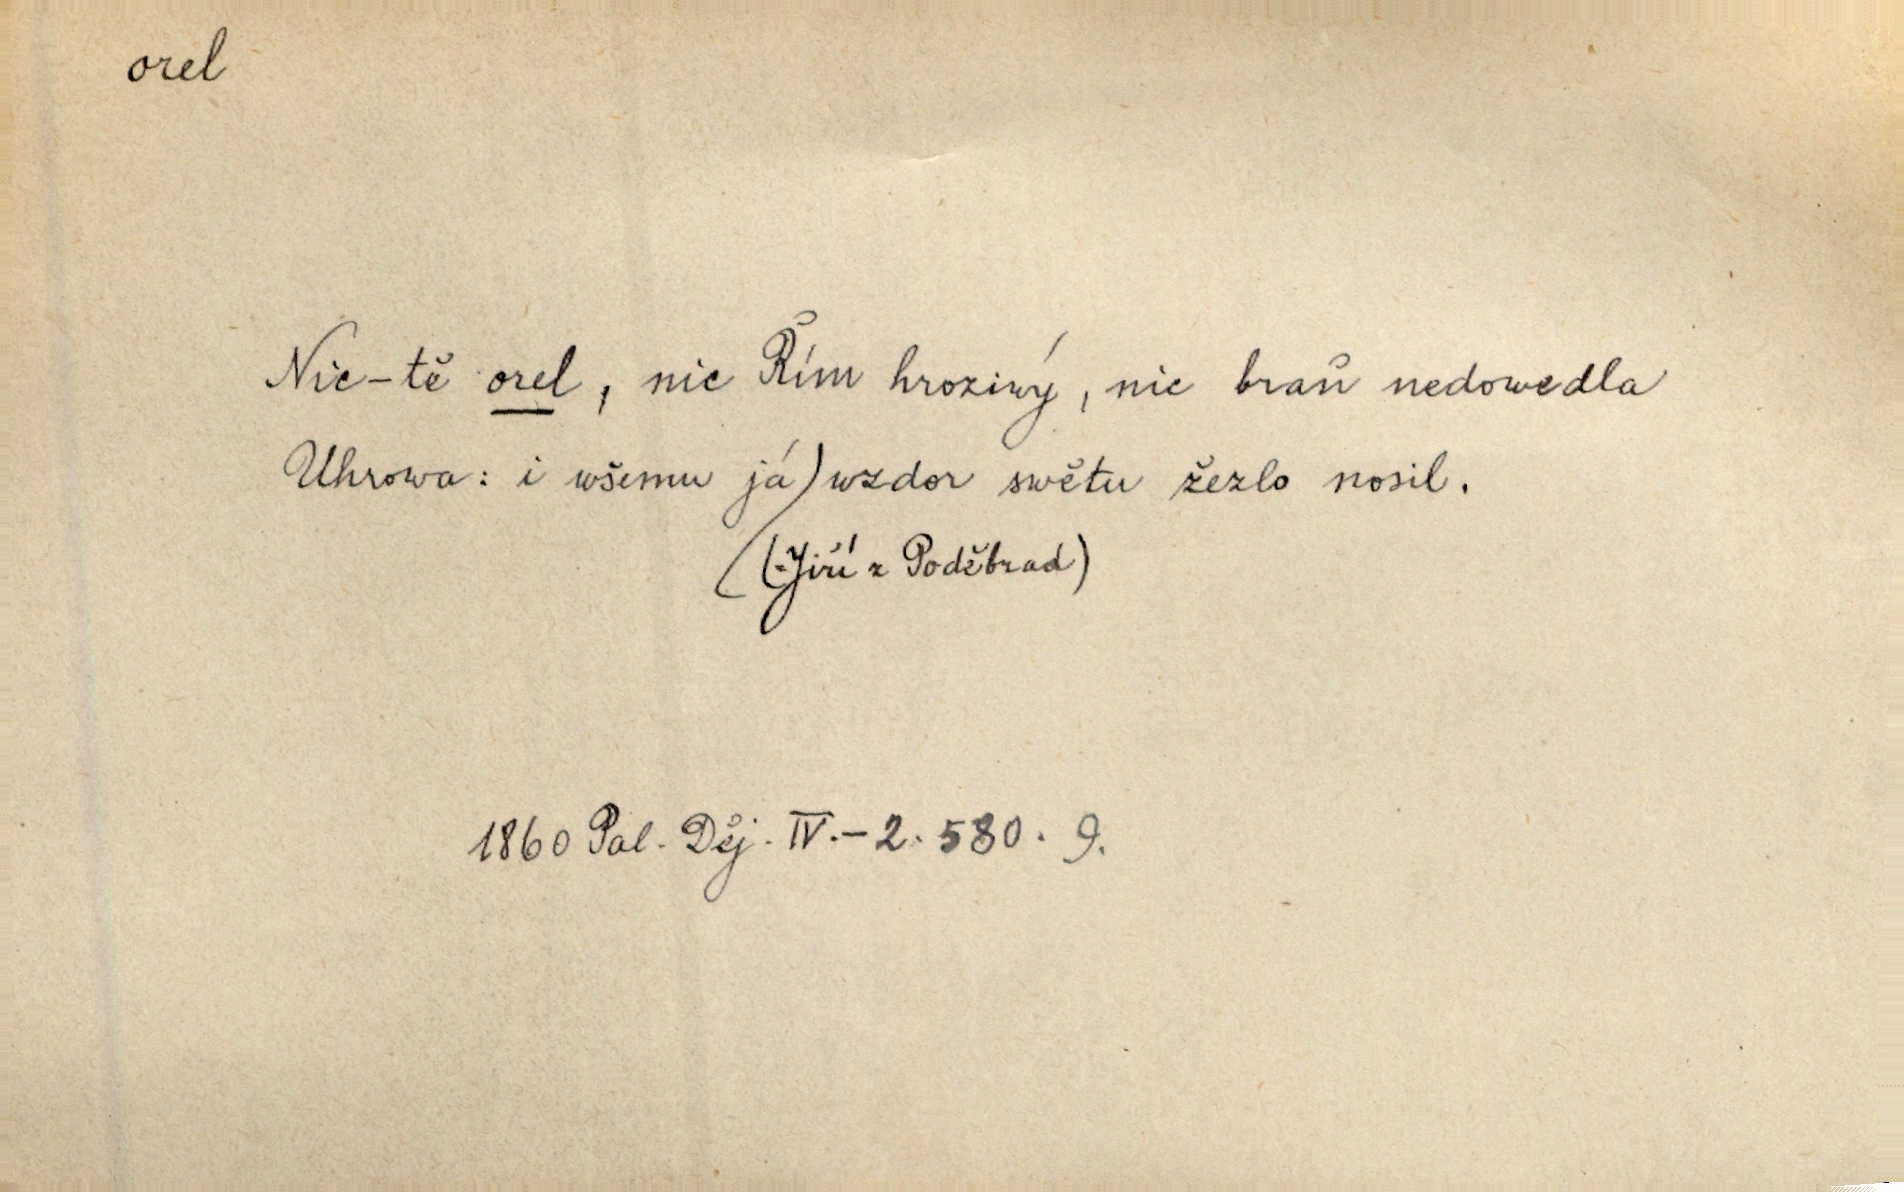 orel
Nic-tě orel, nic Řím hroziwý, nic braň nedowedla
Uhrowa: i wšemu já) wzdor swětu žezlo nosil.
(Jiří z Poděbrad)
1860 Pal. Děj. IV.-2. 580. 9.